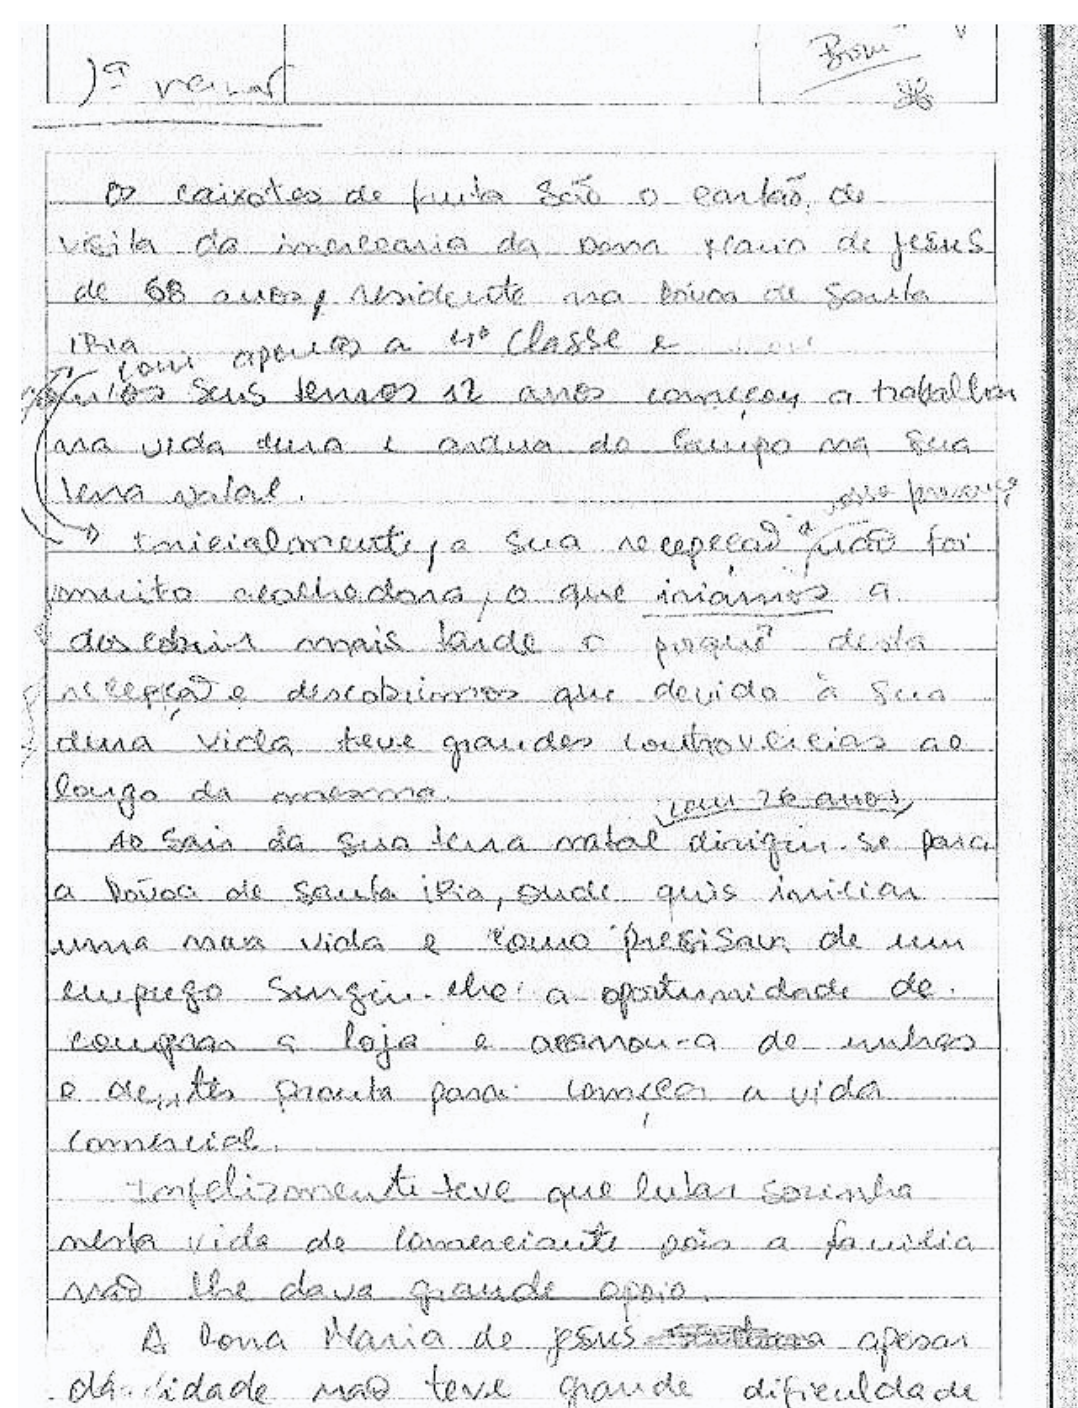 1ª versão
Bom
Os caixotes de fruta são o cartão de
visita da mercearia da Dona Maria de Jesus
de 68 anos, residente na Póvoa de Santa
iria
com apenas a 4ª classe e
os seus tenros 12 anos começou a trabalhar
na vida dura e ardua do campo na sua
terra natal.
Inicialmente, a sua recepção não foi
muito acolhedora, o que iriamos a
descobrir mais tarde o porquê desta
recepção e descobrimos que devido à sua
dura vida teve grandes controvercias ao
longo da mesma.
com 26 anos,
Ao sair da sua terra natal dirigiu-se para
a Póvoa de Santa iria, onde quis iniciar
uma nova vida e como precisava de um
emprego surgiu-lhe a oportunidade de
comprar a loja e agarrou-a de unhas
e dentes pronta para começar a vida
comercial.
Infelizmente teve que lutar sozinha
nesta vida de comerciante pois a familia
não lhe dava grande apoio.
A Dona Maria de Jesus apesar
da idade não teve grande dificuldade